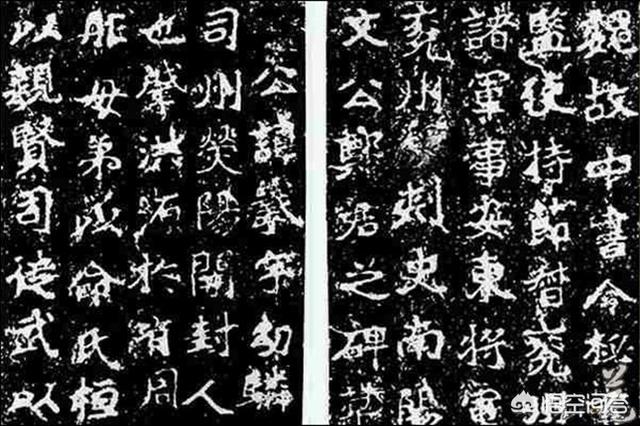 魏故中書令秘
監使持節督兗州
諸軍事安東將軍
兗州刺史南陽
文公鄭君之碑
公諱羲字幼驎
司州熒陽開封人
也肇洪源於有周
胙母弟以命氏桓
以親賢司徒武以
悟空问答